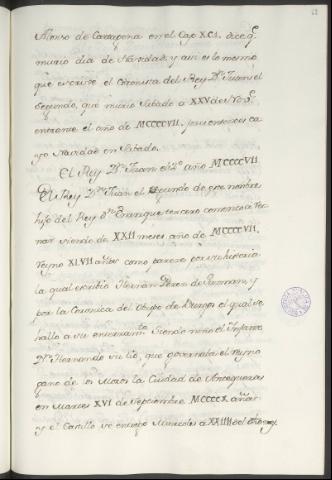 Alonso de Cartagena en el Cap. XCI. dice q.
murio dia de Navidad, y aun es lo mesmo
que escrive el Coronista del Rey D.n Juan el
Segundo, que murio Sabado a XXV de
entrante el año de MCCCCVII. pues entonces ca
yo Navidad en Sabado.
El Rey D.n Juan el 2.o año MCCCCVII
El Rey D.n Juan el Segundo de este nombre
hijo del Rey D.n Enrique tercero comenzo a Rey
nar siendo de XXII meses año de MCCCCVII,
reyno XLVII años como parece por su historia
la qual escribio Hernan Perez de Guzman, y
por la Coronica del Obispo de el qual se
hallo a su enterram.to siendo niño el Infante
D.n Hernando su tio, que governaba el reyno
gano de los Moros la Ciudad de Antequera
en Martes XVI de Septiembre MCCCCX años
y el Castillo se entrego Miercoles a XXIIII del